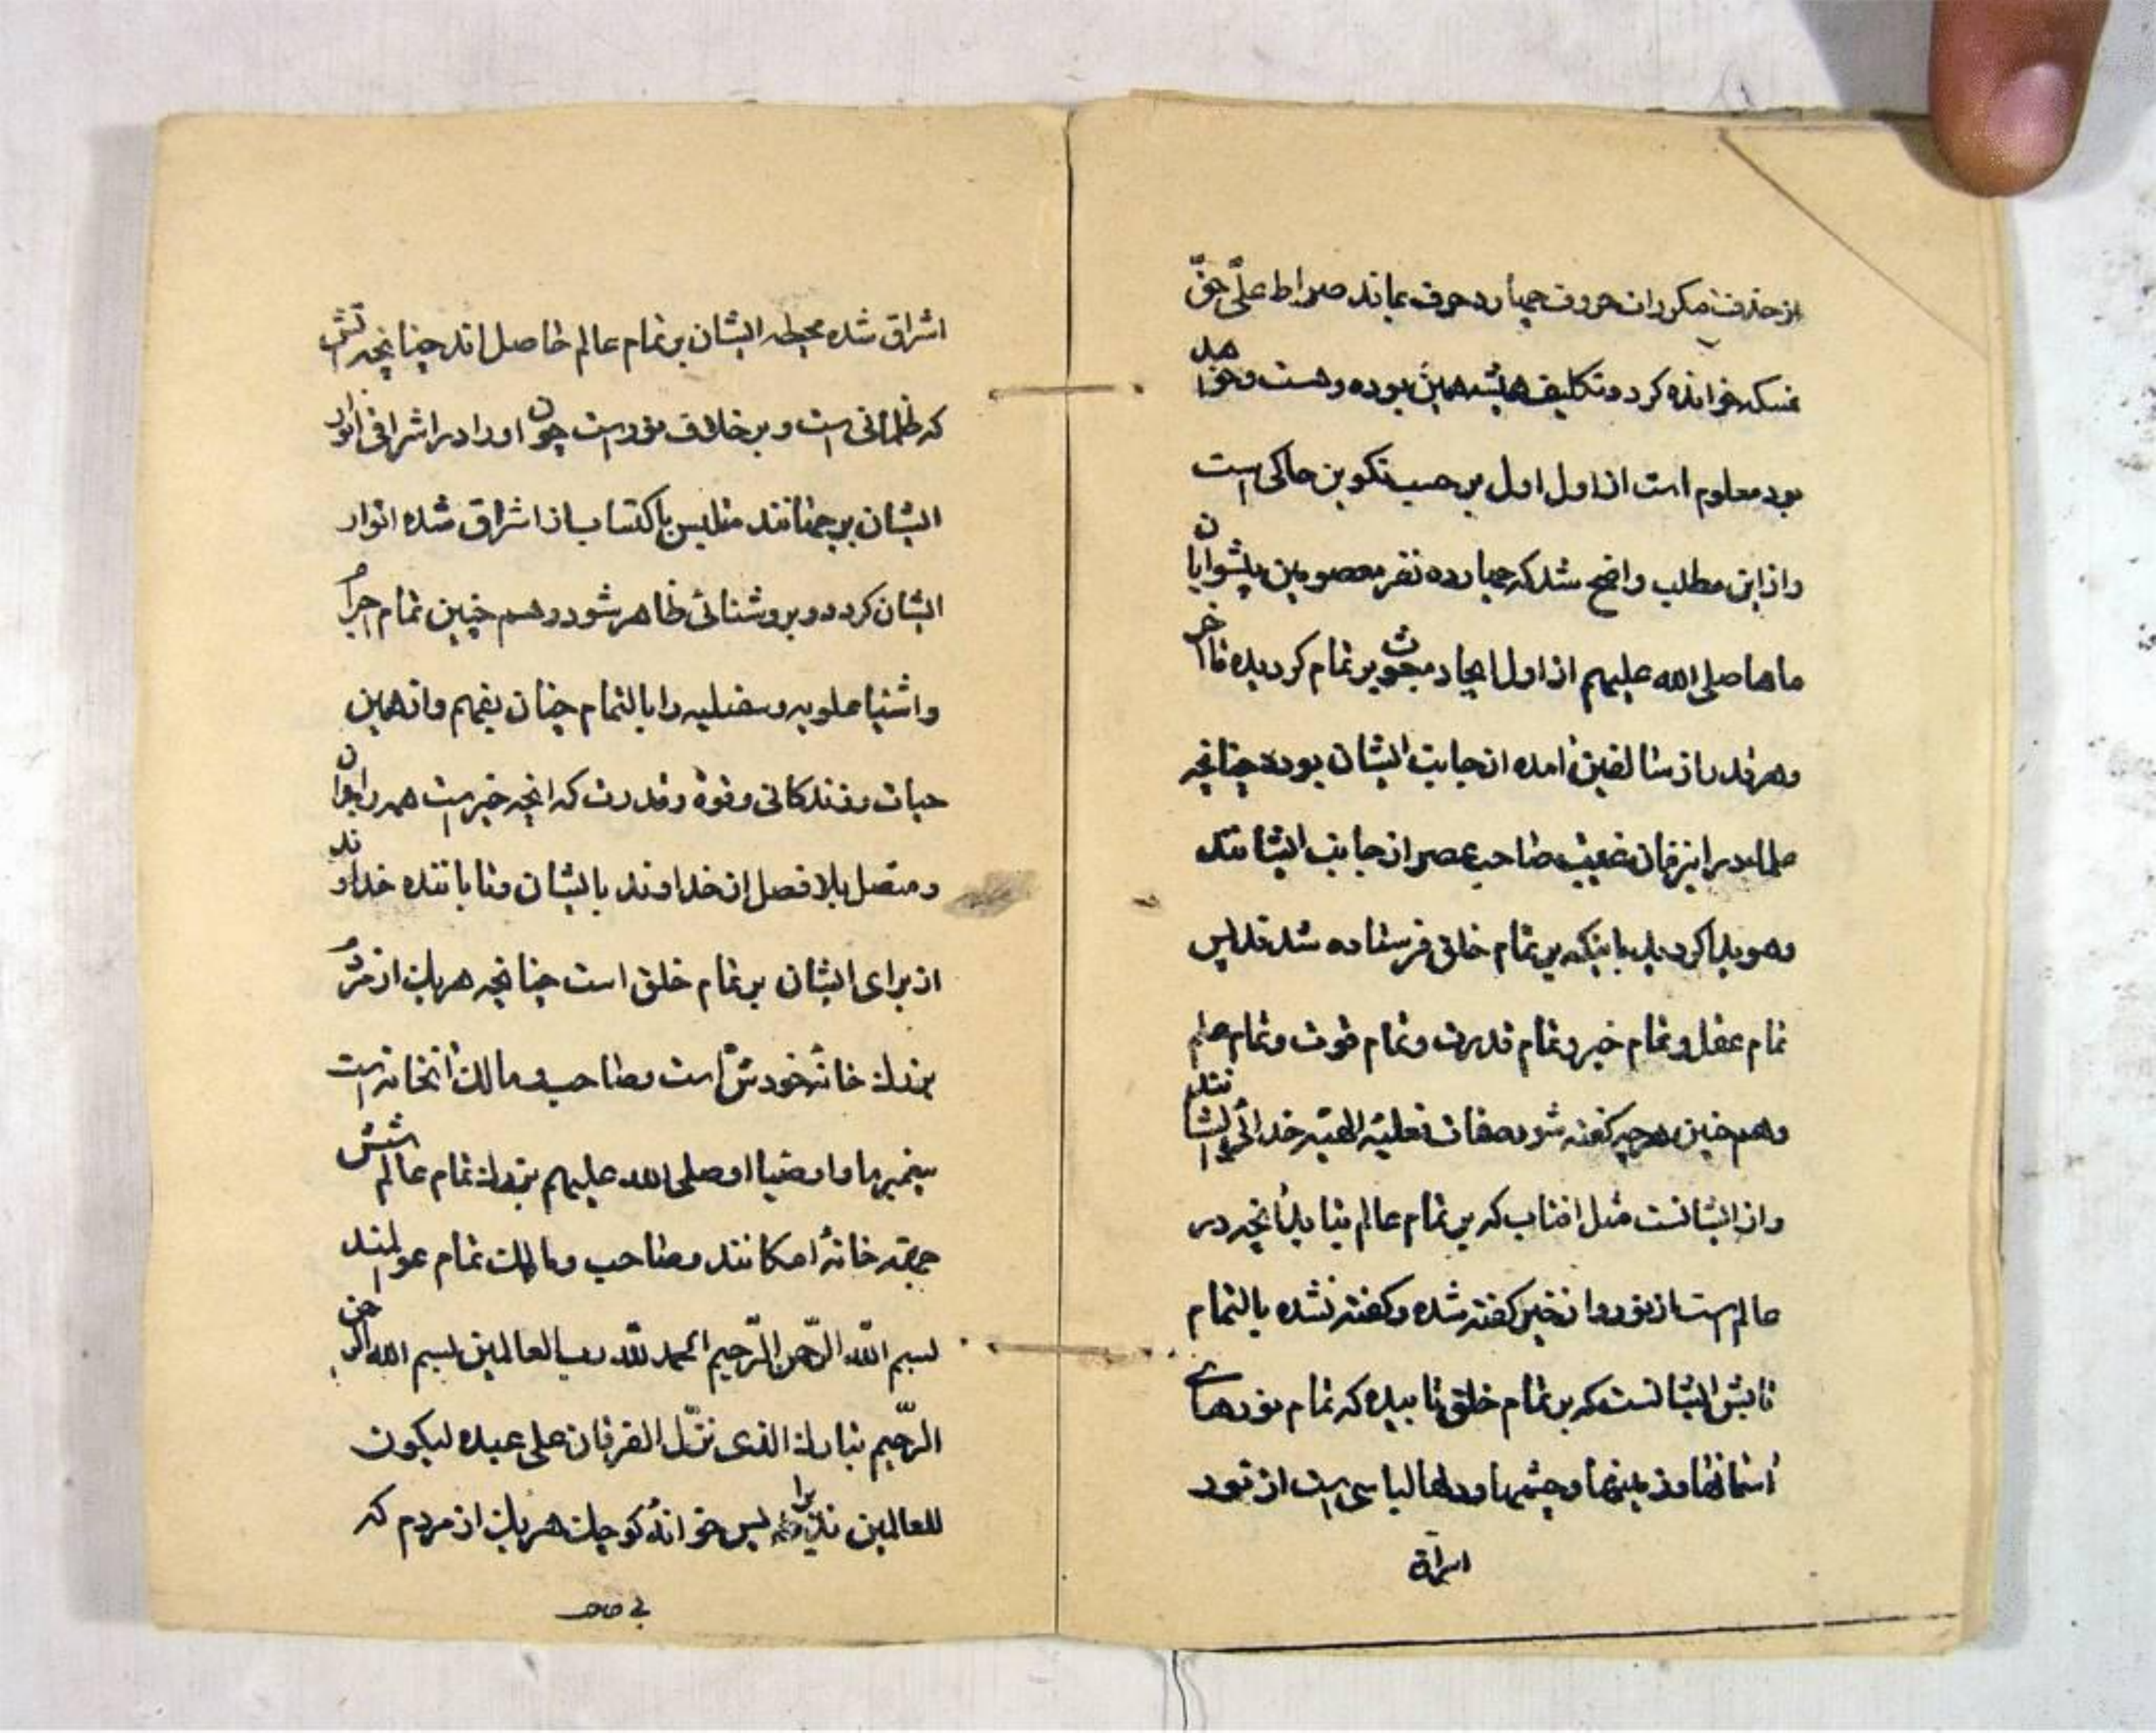 از حذف مکررات حروف چهارده حرف بماند صراط علیّ حقّ
نمسکه خوانده کرد و تکلیف همیشه همین بوده و هست و خواهد
بود معلوم است از اول اول بر حسب تکوین حاکی است
و از این مطلب واضح شد که چهارده نفر معصومین پیشوایان
ماها صلی الله علیهم از اول ایجاد مبعوث بر تمام کردیده تا آخر
و هر قدر از سالفین آمده از جانب ایشان بوده چنانچه
علما در این زمان غیبت صاحب عصر از جانب ایشانند
و هویدا کردید باینکه بر تمام خلق فرستاده شدند پس
تمام عقل و تمام خیر و تمام قدرت و تمام قوت و تمام علم
و هم چنین هر چه کفته شود صفات فعلیّه الهیّه خدائی ایشانند
و از ایشانست مثل افتاب که بر تمام عالم بتابد آنچه در
عالم است از نور و از خیر کفته شده و کفته نشده بالتمام
تابش ایشانست که بر تمام خلق تابیده که تمام نورهای
آسمانها و زمینها و چشمها و دلها لباسی است از نور
اشراق
اشراق شده محیطه ایشان بر تمام عالم حاصل اند چنانچه آتش
که ظلمانی است و بر خلاف نور است چون او را در اشراق انوار
ایشان بر جهانند متلبس باکتساب از اشراق شده انوار
ایشان کردد و بروشنائی ظاهر شود و هم چنین تمام اجرام
و اشیا علویه و سفلیه را بالتمام چنان بفهم و از همین
حیات و زندکانی و قوة و قدرت که آنچه خیر است همه را بدان
و متصل بلا فصل از خداوند بایشان و تاباننده خداوند
از برای ایشان بر تمام خلق است چنانچه هر یک از مردم
بمنزلهٔ خانهٔ خودش است و صاحب و مالک آنخانه است
پیغمبر ما و اوصیا او صلی الله علیهم بمنزلهٔ تمام عالم شش
جهته خانهٔ امکانند و صاحب و مالک تمام عوالمند
بسم اللّه الرّحمن الرّحیم الحمد للّه رب العالمین بسم الله الرحمن
الرّحیم تبارك الذی نزّل الفرقان علی عبده لیکون
للعالمین نذیرا پس خوانهٔ کوچک هر یک از مردم که